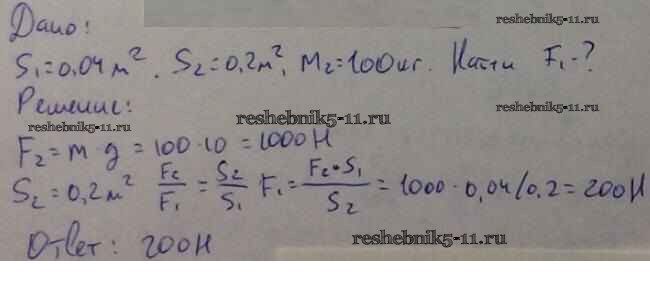 Дано:
reshebnik5-11.ru
S₁=0,04м². S₂=0,2м², M₂=100кг. Найти F₁-?
Решение:
reshebnik5-11.ru
reshebnik5-11.ru
reshebnik5-11.ru
F₂=m·g=100·10=1000Н
S₂=0,2м² F₂/F₁=S₂/S₁ F₁=F₂·S₁/S₂=1000·0,04/0,2=200Н
Ответ: 200Н
reshebnik5-11.ru